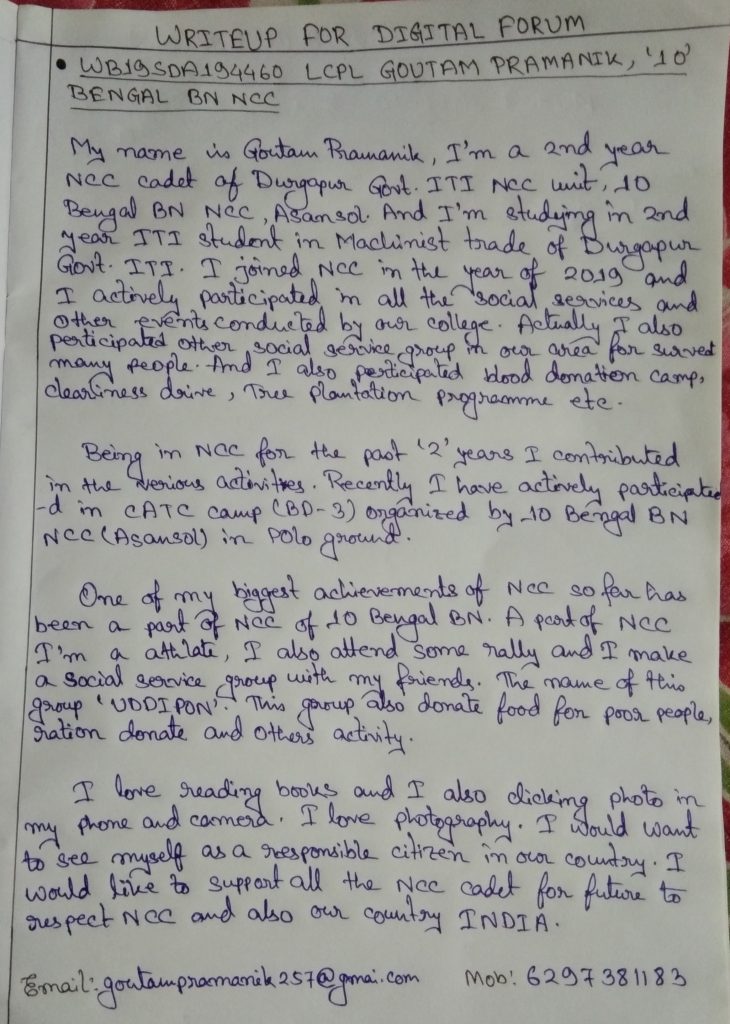 WRITEUP FOR DIGITAL FORUM
• WB19SDA194460 LCPL GOUTAM PRAMANIK, '10'
BENGAL BN NCC
My name is Goutam Pramanik, I'm a 2nd year
NCC cadet of Durgapur Govt. ITI NCC unit, 10
Bengal BN NCC, Asansol. And I'm studying in 2nd
year ITI student in Machinist trade of Durgapur
Govt. ITI. I joined NCC in the year of 2019 and
I actively participated in all the social services and
other events conducted by our college. Actually I also
perticipated other social service group in our area for surved
many people. And I also perticipated blood donation camp,
clearliness drive, Tree plantation programme etc.
Being in NCC for the past '2' years I contributed
in the verious activities. Recently I have actively participate
-d in CATC camp (BD-3) organized by 10 Bengal BN
NCC (Asansol) in Polo ground.
One of my biggest achievements of NCC so far has
been a part of NCC of 10 Bengal BN. A part of NCC
I'm a athlate, I also attend some rally and I make
a social service group with my friends. The name of this
group 'UDDIPON'. This group also donate food for poor people,
ration donate and others activity.
I love reading books and I also clicking photo in
my phone and camera. I love photography. I would want
to see myself as a responsible citizen in our country. I
would like to support all the NCC cadet for future to
respect NCC and also our country INDIA.
Email:- goutampramanik257@gmai.com Mob: 6297381183